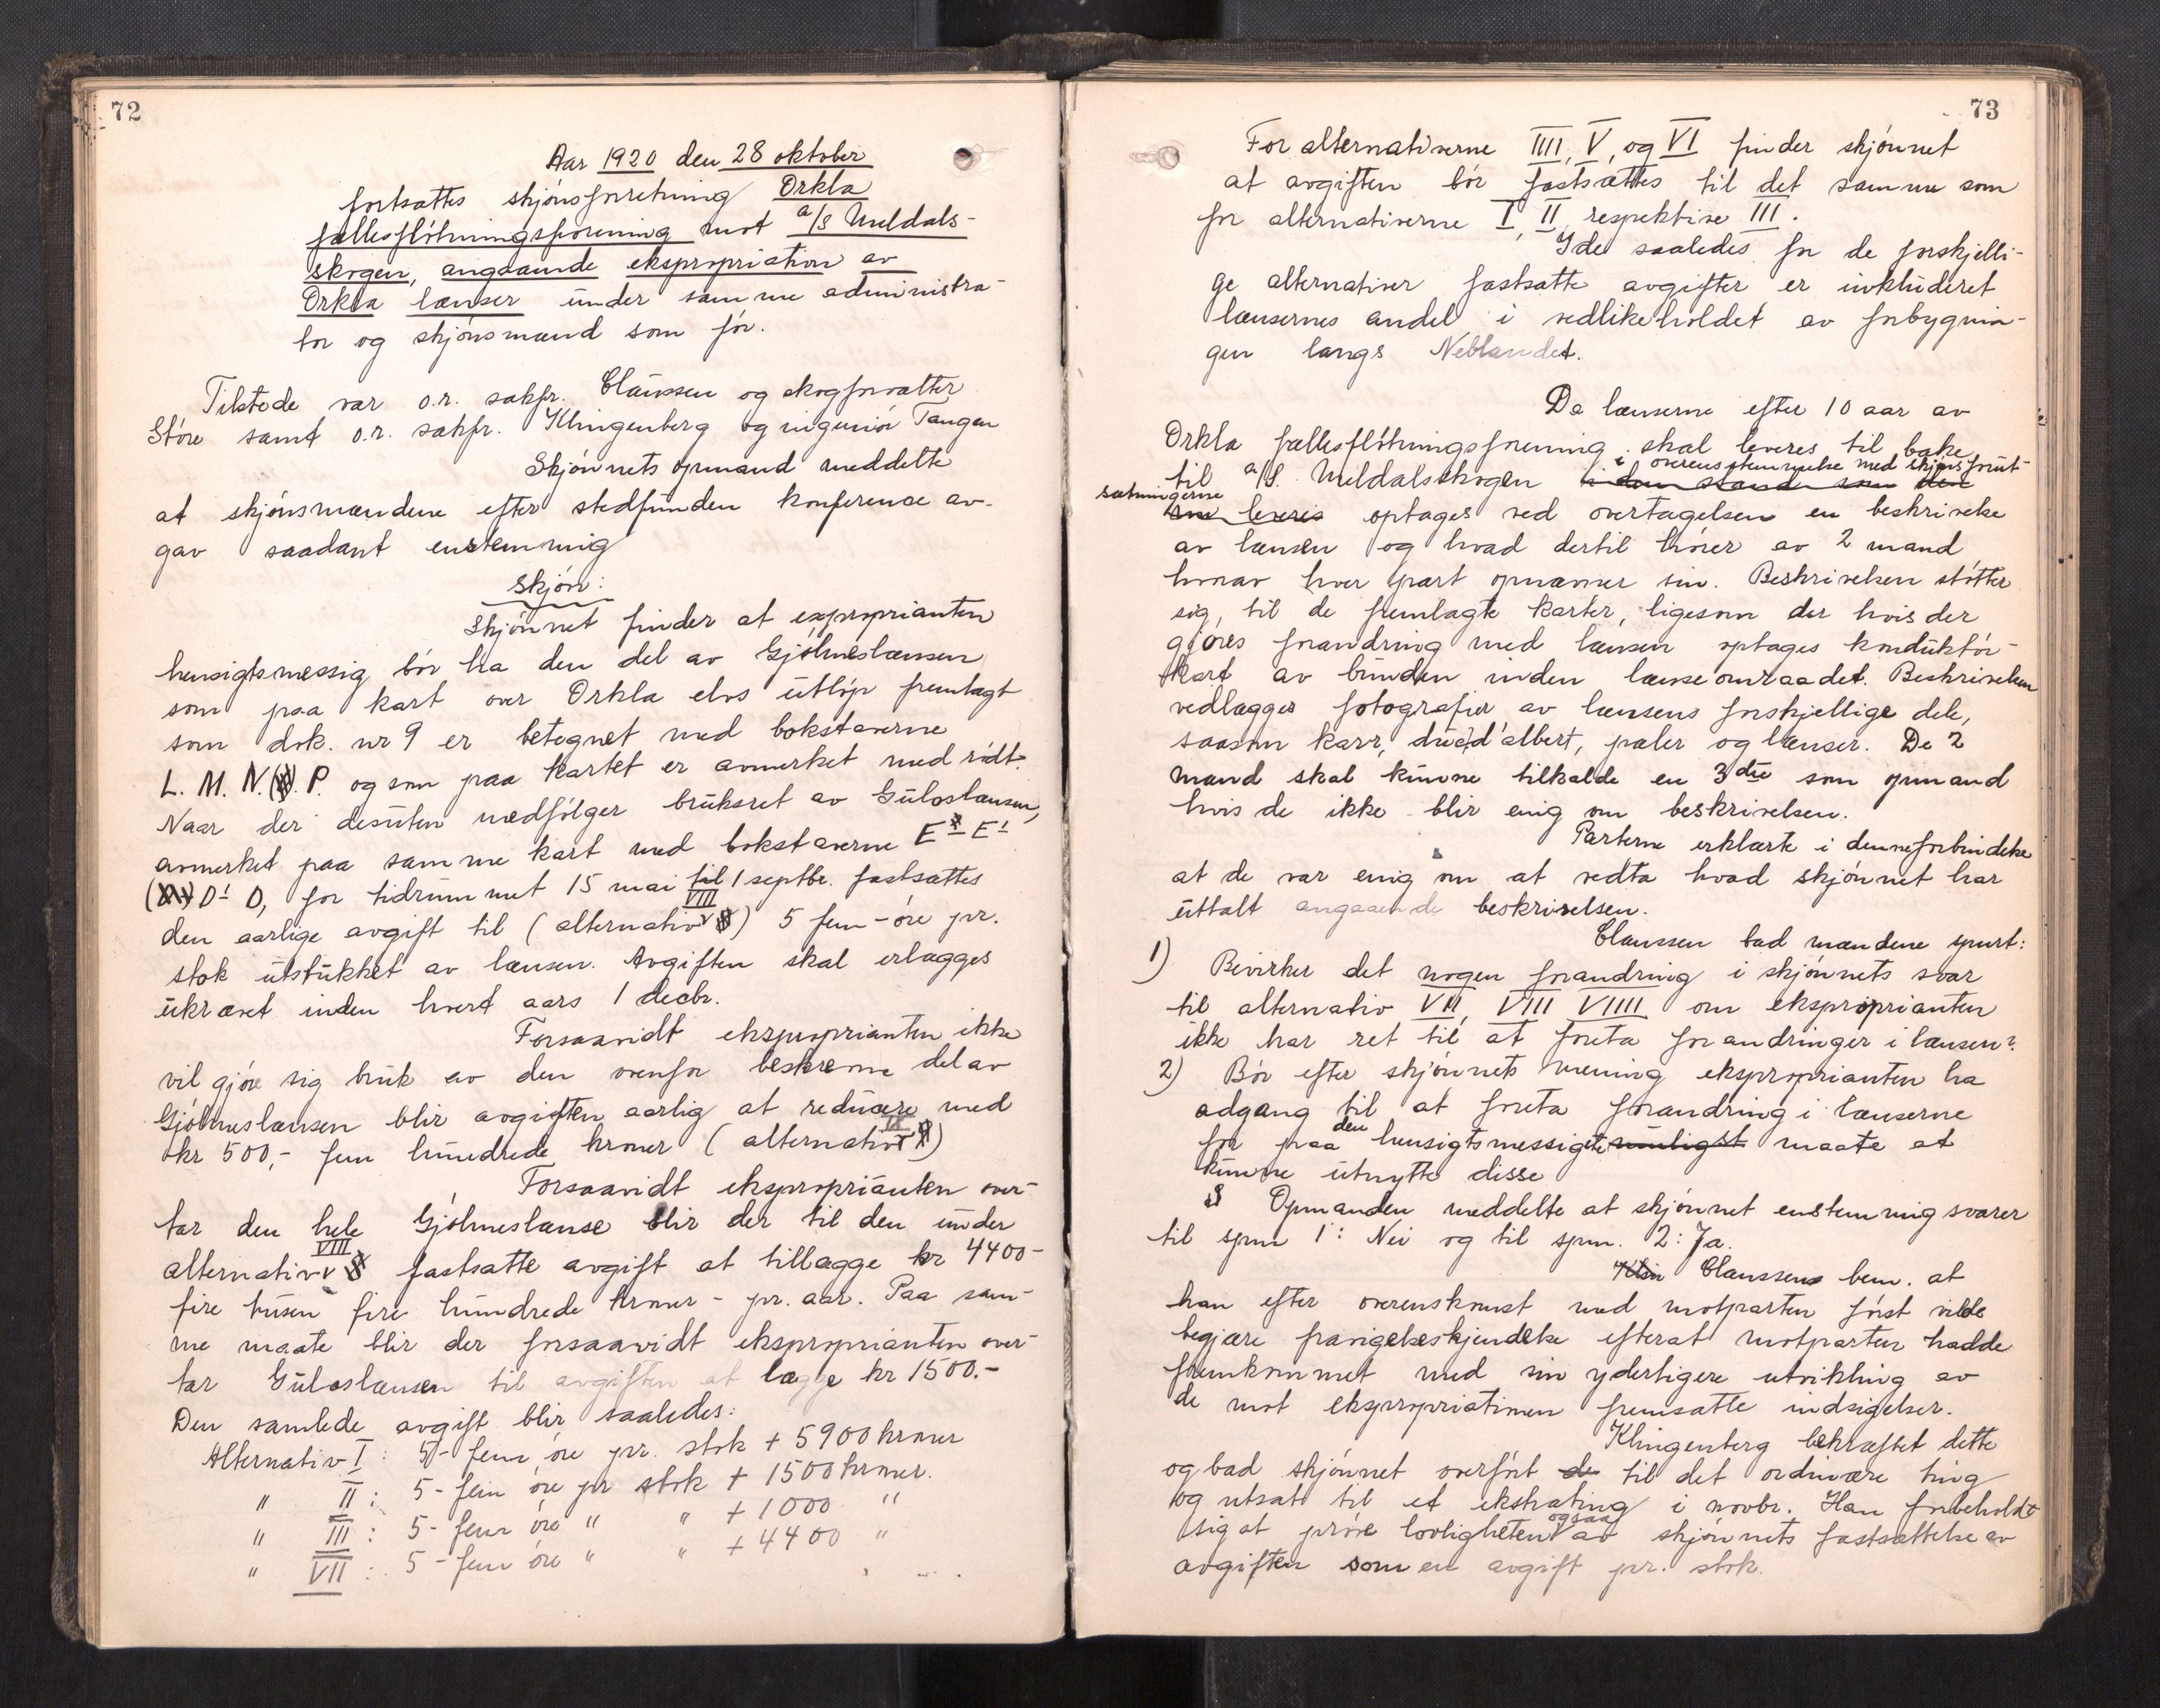 72
Aar 1920 den 28 oktober
fortsattes skjønsforretning Orkla
fællesfløtningsforening mot a/s Meldals-
skogen, angaaende ekspropriation av
Orkla lænser under samme administra-
tor og skjønsmænd som før.
Tilstede var o.r. sakfr. Claussen og skogforvalter
Støre samt o.r. sakfr. Klingenberg og ingeniør Tangen
Skjønnets opmand meddelte
at skjønsmændene efter stedfunden konference av-
gav saadant enstemmig
Skjøn:
Skjønnet finder at exproprianten
hensigtsmessig bør ha den del av Gjølmeslænsen
som paa kart over Orkla elvs utløp fremlagt
som dok. nr 9 er betegnet med bokstaverne
L. M. N. P. og som paa kartet er avmerket med rødt.
Naar der desuten medfølger bruksret av Guloslænsen,
avmerket paa samme kart med bokstaverne E E¹
D¹ D, for tidrummet 15 mai til 1 septbr. fastsættes
den aarlige avgift til (alternativ VIII) 5 fem-øre pr.
stok utstukket av lænsen. Avgiften skal erlægges
ukrævet inden hvert aars 1 decbr.
Forsaavidt eksproprianten ikke
vil gjøre sig bruk av den ovenfor beskrevne del av
Gjølmeslænsen blir avgiften aarlig at reducere med
kr 500,- fem hundrede kroner (alternativ IX)
Forsaavidt eksproprianten over-
tar den hele Gjølmeslænse blir der til den under
alternativ VIII fastsatte avgift at tillægge kr 4400-
fire tusen fire hundrede kroner - pr. aar. Paa sam-
me maate blir der forsaavidt eksproprianten over-
tar Guloslænsen til avgiften at lægge kr 1500.-
Den samlede avgift blir saaledes:
Alternativ I: 5- fem øre pr. stok + 5900 kroner
" II: 5- fem øre pr stok + 1500 kroner.
" III: 5- fem øre " " + 1000 "
" VII: 5- fem øre " " + 4400 "
73
For alternativerne IIII, V, og VI finder skjønnet
at avgiften bør fastsættes til det samme som
for alternativerne I, II, respektive III.
I de saaledes for de forskjelli-
ge alternativer fastsatte avgifter er inkluderet
lænsernes andel i vedlikeholdet av forbygnin-
gen langs Neblandet.
Da lænserne efter 10 aar av
Orkla fællesfløtningsforening skal leveres til bake
til a/S. Meldalsskogen i dem stand som den
i overensstemmelse med skjønsforut-
sætningerne
leveres optages ved overtagelsen en beskrivelse
av lænsen og hvad dertil hører av 2 mand
hvorav hver part opnævner sin. Beskrivelsen støtter
sig til de fremlagte karter, ligesom der hvis der
gjøres forandring med lænsen optages konduktør-
kart av bunden inden lænseomraadet. Beskrivelsen
vedlægges fotografier av lænsens forskjellige dele,
saasom karr, duc d'albert, pæler og lænser. De 2
mænd skal kunne tilkalde en 3die som opmand
hvis de ikke blir enig om beskrivelsen.
Parterne erklærte i denne forbindelse
at de var enig om at vedta hvad skjønnet har
uttalt angaaende beskrivelsen.
Claussen bad mændene spurt:
1) Bevirker det nogen forandring i skjønnets svar
til alternativ VII, VIII VIIII om eksproprianten
ikke har ret til at foreta forandringer i lænsen?
2) Bør efter skjønnets mening eksproprianten ha
adgang til at foreta forandring i lænserne
for paa den hensigtsmessigste muligst maate at
kunne utnytte disse
Opmanden meddelte at skjønnet enstemmig svarer
til spm 1: Nei og til spm. 2: Ja.
Klin Claussen bem. at
han efter overenskomst med motparten først vilde
begjære fravigelseskjendelse efterat motparten hadde
fremkommet med sin yderligere utvikling av
de mot ekspropriationen fremsatte indsigelser.
Klingenberg bekræftet dette
og bad skjønnet overført de til det ordinære ting
og utsat til et ekstrating i novbr. Han forbeholdt
sig at prøve lovligheten ogsaa av skjønnets fastsættelse av
avgiften som en avgift pr. stok.